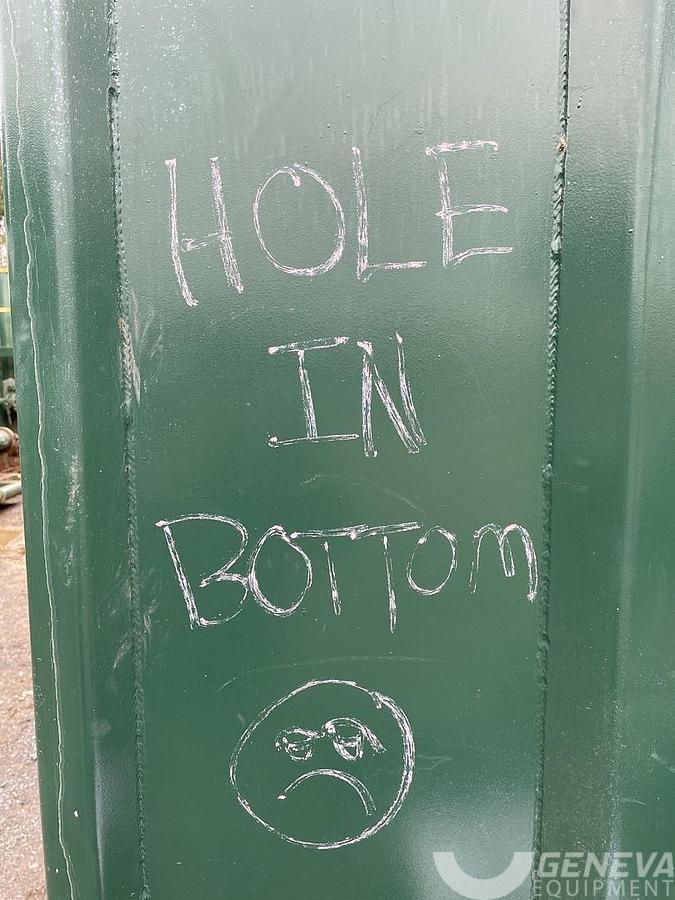 HOLE
IN
BOTTOM
GENEVA
EQUIPMENT